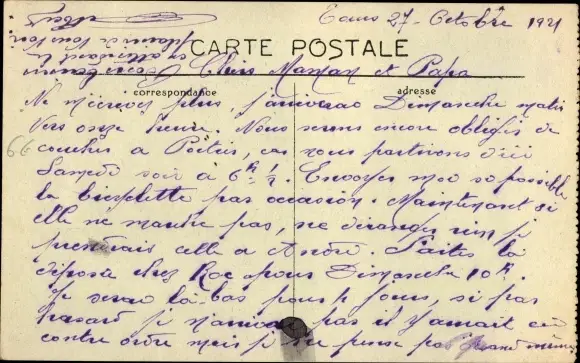 Tours 27 Octobre 1921
CARTE POSTALE
Chers Maman et Papa
correspondance
adresse
Ne m'écrivez plus, j'arriverai Dimanche matin
vers onze heures. Nous serons encore obligés de
66
coucher a Poitiers, car nous partirons d'ici
Samedi soir à 6h ½. Envoyez moi si possible
la bicyclette par occasion. Maintenant si
elle ne marche pas, ne dérangez rien je
prendrais celle a André. Faites la
déposer chez Roc pour Dimanche 10h.
Je serai la-bas pour 4 jours, si par
hasard je n'arrivais pas il y aurait eu
contre ordre mais je ne pense pas quand même